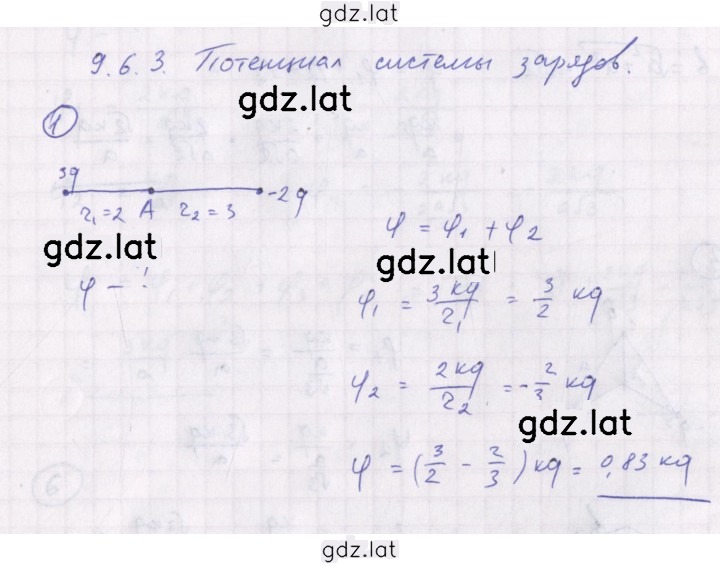 gdz.lat
9.6.3. Потенциал системы зарядов.
gdz.lat
1
3q
-2q
r₁=2 A r₂=3
gdz.lat
φ - !
φ = φ₁ + φ₂
gdz.lat
φ₁ = 3kq/r₁ = 3/2 kq
φ₂ = 2kq/r₂ = -2/3 kq
gdz.lat
φ = (3/2 - 2/3) kq = 0,83 kq
gdz.lat